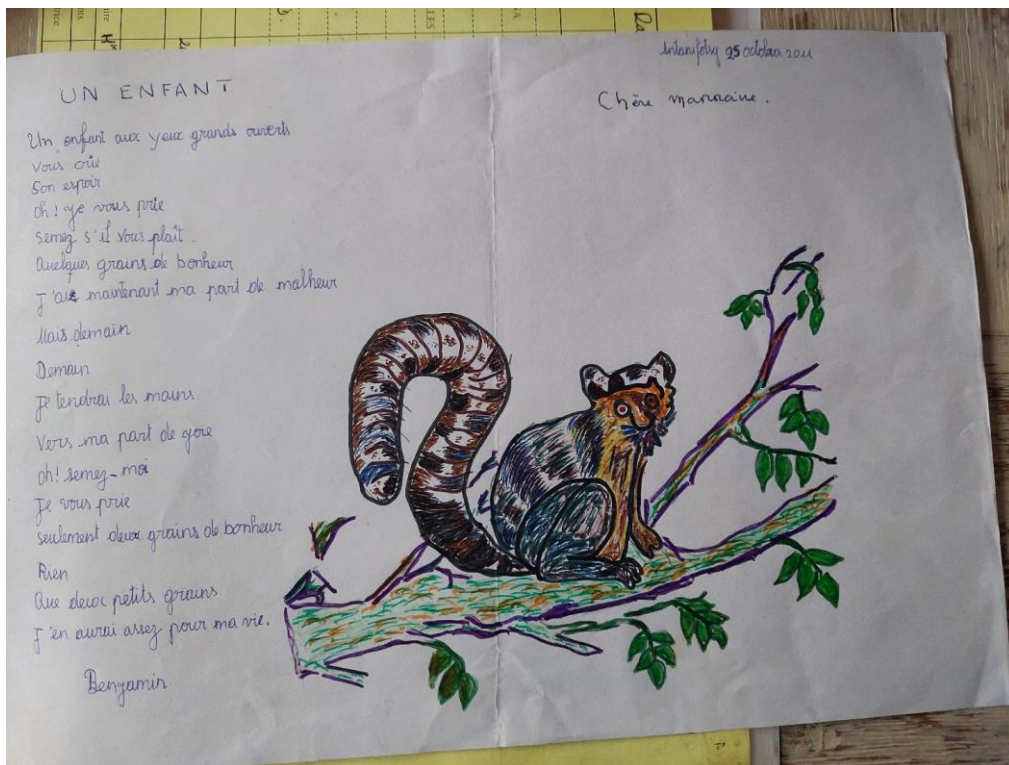 UN ENFANT
Un enfant aux yeux grands ouverts
Vous crie
Son espoir
Oh! je vous prie
semez s'il vous plaît.
Quelques grains de bonheur
J'ai maintenant ma part de malheur
Mais demain
Demain
Je tendrai les mains
Vers ma part de goie
oh! semez-moi
Je vous prie
seulement deux grains de bonheur
Rien
Que deux petits grains
J'en aurai assez pour ma vie.
Benjamin
25 octobre
Chère marraine.